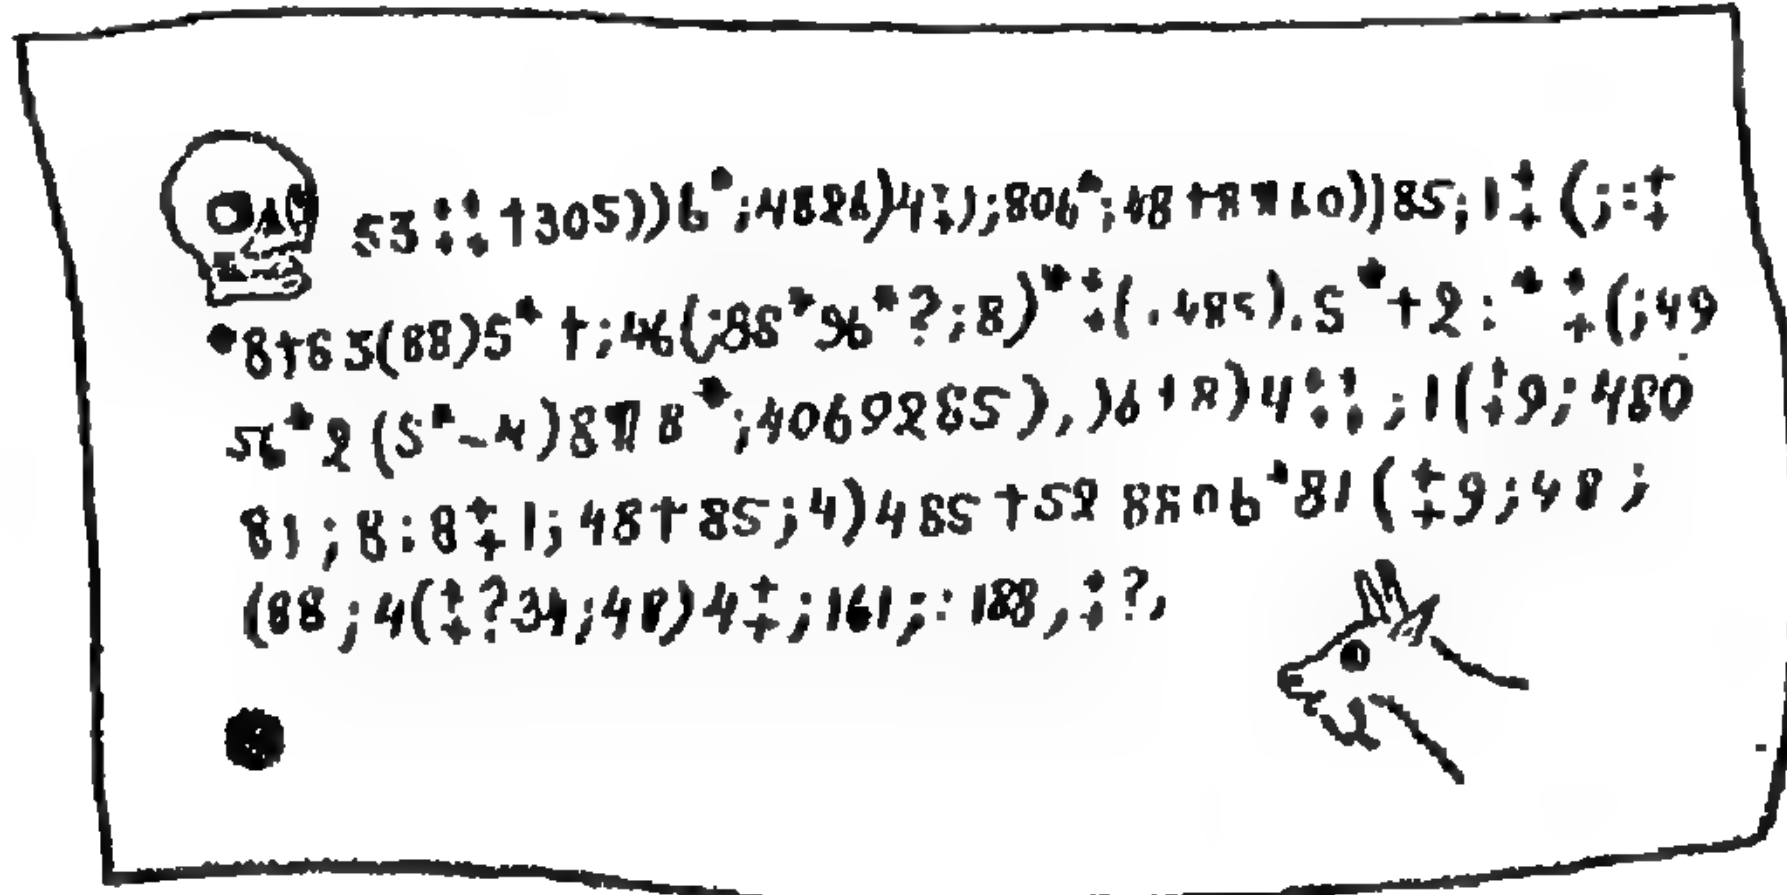 53‡‡†305))6*;4826)4‡);806*;48†8¶60))85;1‡(;:‡
*8†83(88)5*†;46(;88*96*?;8)*‡(.485).5*†2:*‡(;49
56*2(5*-4)8¶8*;4069285),)6†8)4‡‡;1(‡9;480
81;8:8‡1;48†85;4)485†528806*81(‡9;48;
(88;4(‡?34;48)4‡;161;:188,‡?,